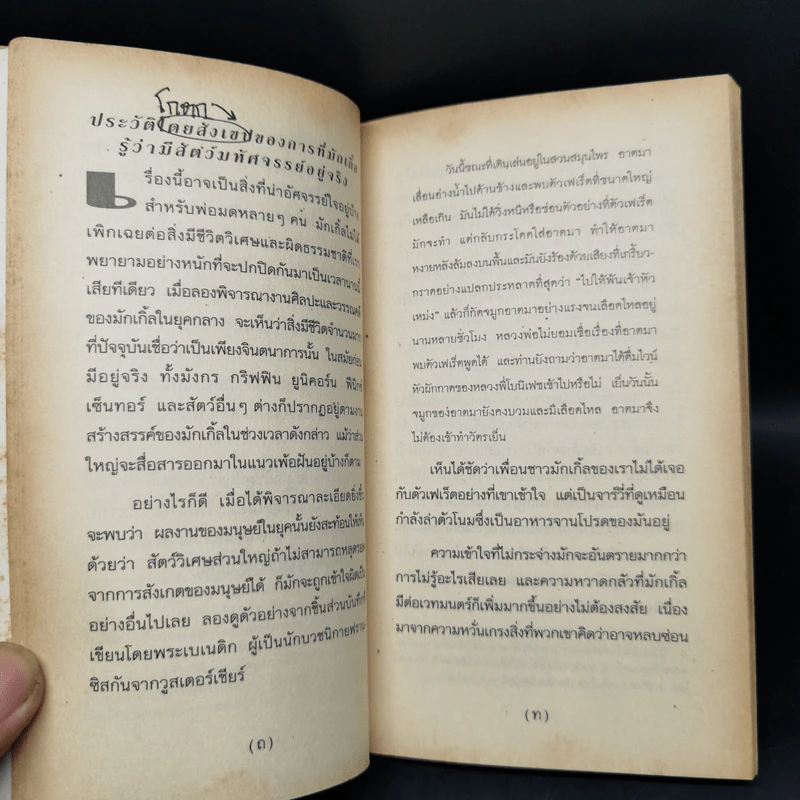 โกหก
ประวัติโดยสังเขปของการที่มักเกิ้ล
รู้ว่ามีสัตว์มหัศจรรย์อยู่จริง
เรื่องนี้อาจเป็นสิ่งที่น่าอัศจรรย์ใจอยู่บ้าง
สำหรับพ่อมดหลายๆ คน มักเกิ้ลไม่ได้
เพิกเฉยต่อสิ่งมีชีวิตวิเศษและผิดธรรมชาติที่เรา
พยายามอย่างหนักที่จะปกปิดกันมาเป็นเวลานานนี้
เสียทีเดียว เมื่อลองพิจารณางานศิลปะและวรรณคดี
ของมักเกิ้ลในยุคกลาง จะเห็นว่าสิ่งมีชีวิตจำนวนมาก
ที่ปัจจุบันเชื่อว่าเป็นเพียงจินตนาการนั้น ในสมัยก่อน
มีอยู่จริง ทั้งมังกร กริฟฟิน ยูนิคอร์น ฟีนิกซ์
เซ็นทอร์ และสัตว์อื่นๆ ต่างก็ปรากฏอยู่ตามงาน
สร้างสรรค์ของมักเกิ้ลในช่วงเวลาดังกล่าว แม้ว่าส่วน
ใหญ่จะสื่อสารออกมาในแนวเพ้อฝันอยู่บ้างก็ตาม
อย่างไรก็ดี เมื่อได้พิจารณาละเอียดยิ่งขึ้น
จะพบว่า ผลงานของมนุษย์ในยุคนั้นยังสะท้อนให้เห็น
ด้วยว่า สัตว์วิเศษส่วนใหญ่ถ้าไม่สามารถหลุดรอด
จากการสังเกตของมนุษย์ได้ ก็มักจะถูกเข้าใจผิดเป็น
อย่างอื่นไปเลย ลองดูตัวอย่างจากชิ้นส่วนบันทึกที่
เขียนโดยพระเบเนดิก ผู้เป็นนักบวชนิกายฟราน-
ซิสกันจากวูสเตอร์เชียร์
(ถ)
วันนี้ขณะที่เดินเล่นอยู่ในสวนสมุนไพร อาตมา
เลื่อนอ่างน้ำไปด้านข้างและพบตัวเฟเร็ตที่ขนาดใหญ่
เหลือเกิน มันไม่ได้วิ่งหนีหรือซ่อนตัวอย่างที่ตัวเฟเร็ต
มักจะทำ แต่กลับกระโดดใส่อาตมา ทำให้อาตมา
หงายหลังล้มลงบนพื้นและมันยังร้องด้วยเสียงที่เกรี้ยว-
กราดอย่างแปลกประหลาดที่สุดว่า "ไปให้พ้นเจ้าหัว
เหม่ง" แล้วก็กัดจมูกอาตมาอย่างแรงจนเลือดไหลอยู่
นานหลายชั่วโมง หลวงพ่อไม่ยอมเชื่อเรื่องที่อาตมา
พบตัวเฟเร็ตพูดได้ และท่านยังถามว่าอาตมาได้ดื่มไวน์
หัวผักกาดของหลวงพี่โบนิเฟซเข้าไปหรือไม่ เย็นวันนั้น
จมูกของอาตมายังคงบวมและมีเลือดไหล อาตมาจึง
ไม่ต้องเข้าทำวัตรเย็น
เห็นได้ชัดว่าเพื่อนชาวมักเกิ้ลของเราไม่ได้เจอ
กับตัวเฟเร็ตอย่างที่เขาเข้าใจ แต่เป็นจาร์วี่ที่ดูเหมือน
กำลังล่าตัวโนมซึ่งเป็นอาหารจานโปรดของมันอยู่
ความเข้าใจที่ไม่กระจ่างมักจะอันตรายมากกว่า
การไม่รู้อะไรเสียเลย และความหวาดกลัวที่มักเกิ้ล
มีต่อเวทมนตร์ก็เพิ่มมากขึ้นอย่างไม่ต้องสงสัย เนื่อง
มาจากความหวั่นเกรงสิ่งที่พวกเขาคิดว่าอาจหลบซ่อน
(ท)